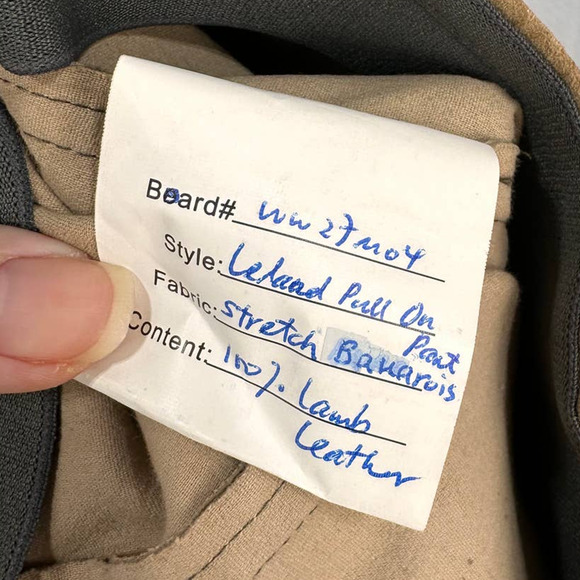 Board# WW27M04
Style: Leland Pull On
Pant
Fabric: Stretch Bavarois
Content: 100% Lamb
Leather